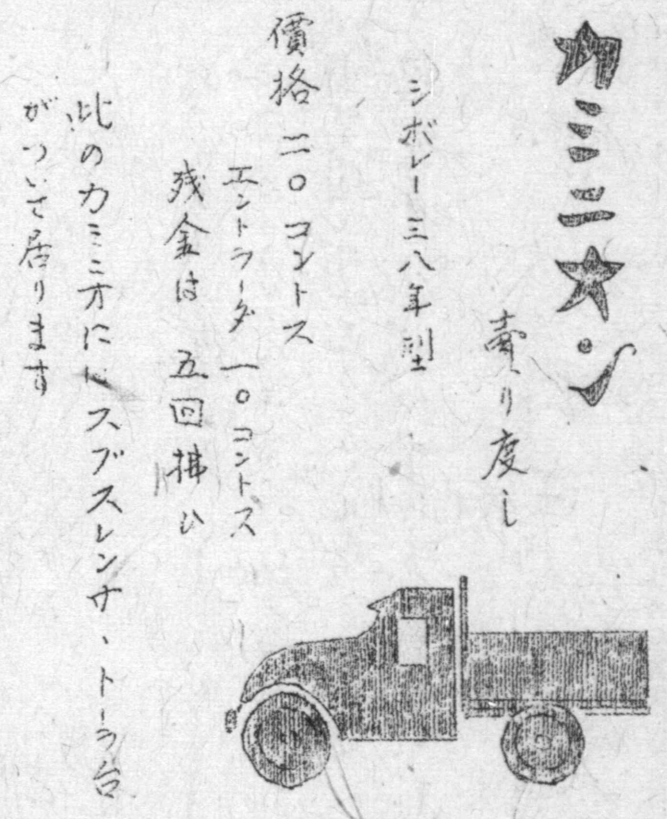 カミニオン
賣り度し
シボレー三八年型
價格 二〇コントス
エントラーダ 一〇コントス
残金は 五回拂ひ
此のカミニオにはスブスレンサ、トーラ台
がついて居ります